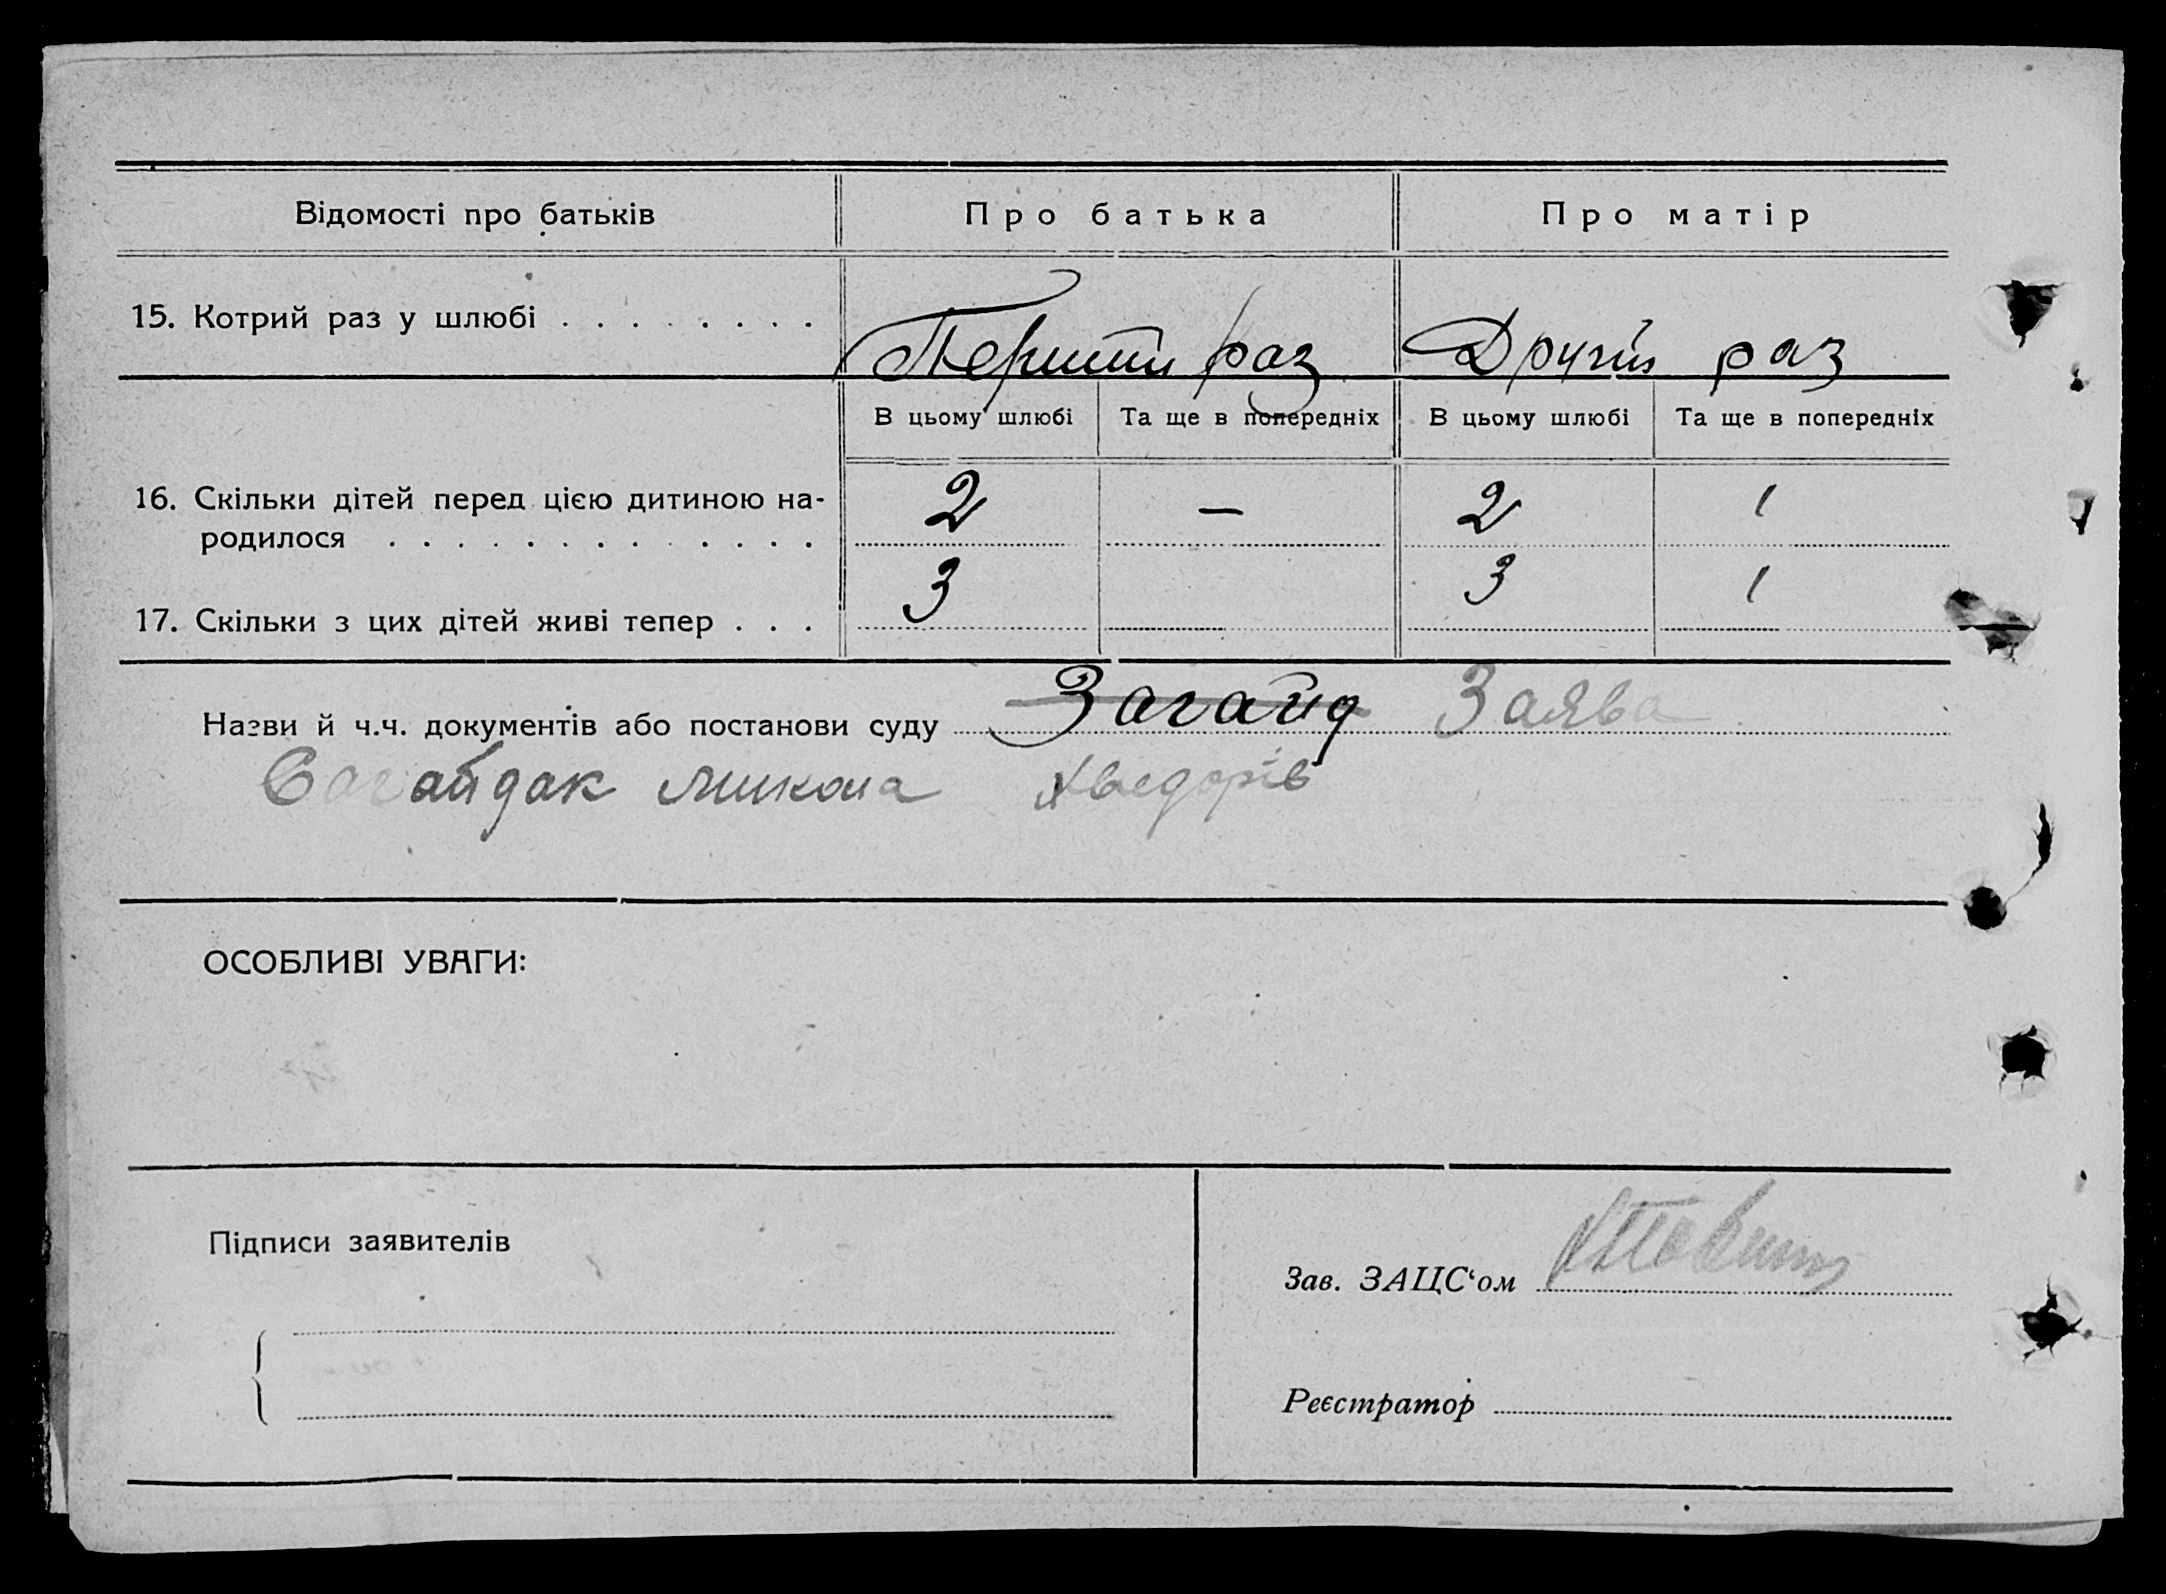 Відомості про батьків Про батька Про матір
15. Котрий раз у шлюбі . . . . . . . . Перший раз Другий раз
В цьому шлюбі Та ще в попередніх В цьому шлюбі Та ще в попередніх
16. Скільки дітей перед цією дитиною на-
родилося . . . . . . . . . . . . . 2 — 2 1
17. Скільки з цих дітей живі тепер . . . 3 3 1
Назви й ч.ч. документів або постанови суду Загайд Заява
Сагайдак Микола Хведорів
ОСОБЛИВІ УВАГИ:
Підписи заявителів
Зав. ЗАЦС‘ом
Реєстратор